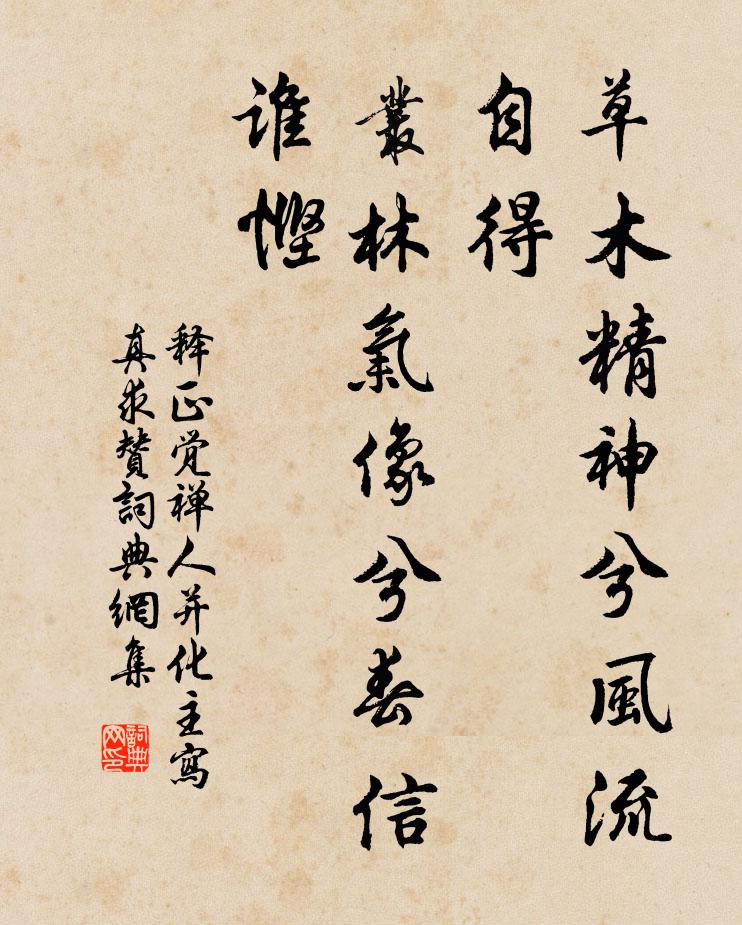 草木精神兮風流
自得
叢林氣像兮春信
誰慳
释正觉禅人并化主寫
真求贊詞典網集
詞典网印